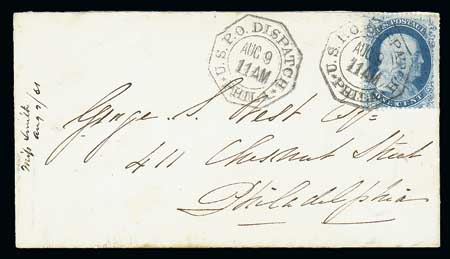 U.S.P.O. DISPATCH
AUG 9
11 AM
PHILA
U.S.P.O. DISPATCH
AUG 9
11 AM
PHILA
U.S. POSTAGE
ONE CENT
Miss Smith
Aug 9/61
George S. West Esq
411 Chesnut Street
Philadelphia